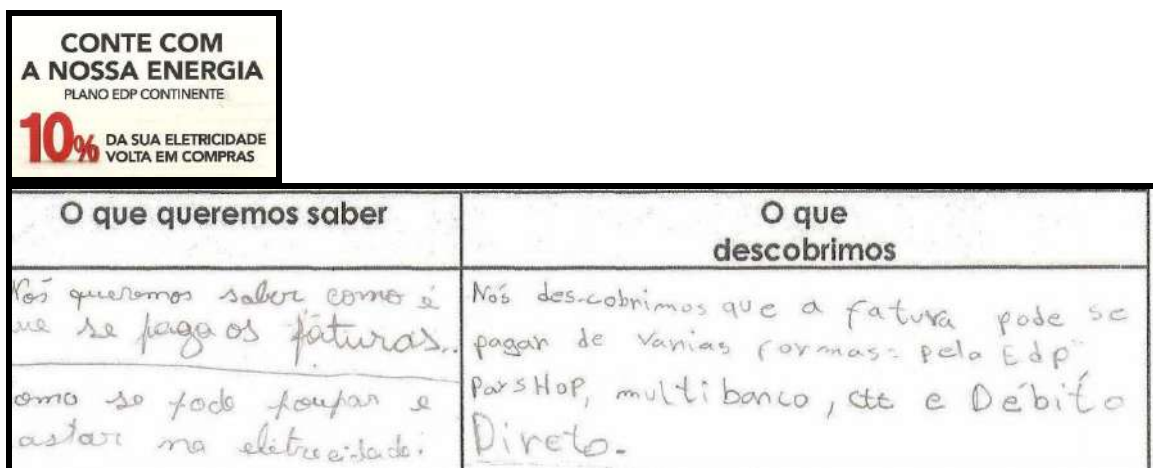 CONTE COM
A NOSSA ENERGIA
PLANO EDP CONTINENTE
10% DA SUA ELETRICIDADE
VOLTA EM COMPRAS
O que queremos saber
Nós queremos saber como é
ue se paga os faturas..
omo se pode poupar e
astar na eletrecidade.
O que
descobrimos
Nós descobrimos que a fatura pode se
pagar de varias formas: pela Edp,
ParsHop, multibanco, ctt e Débito
Direto.